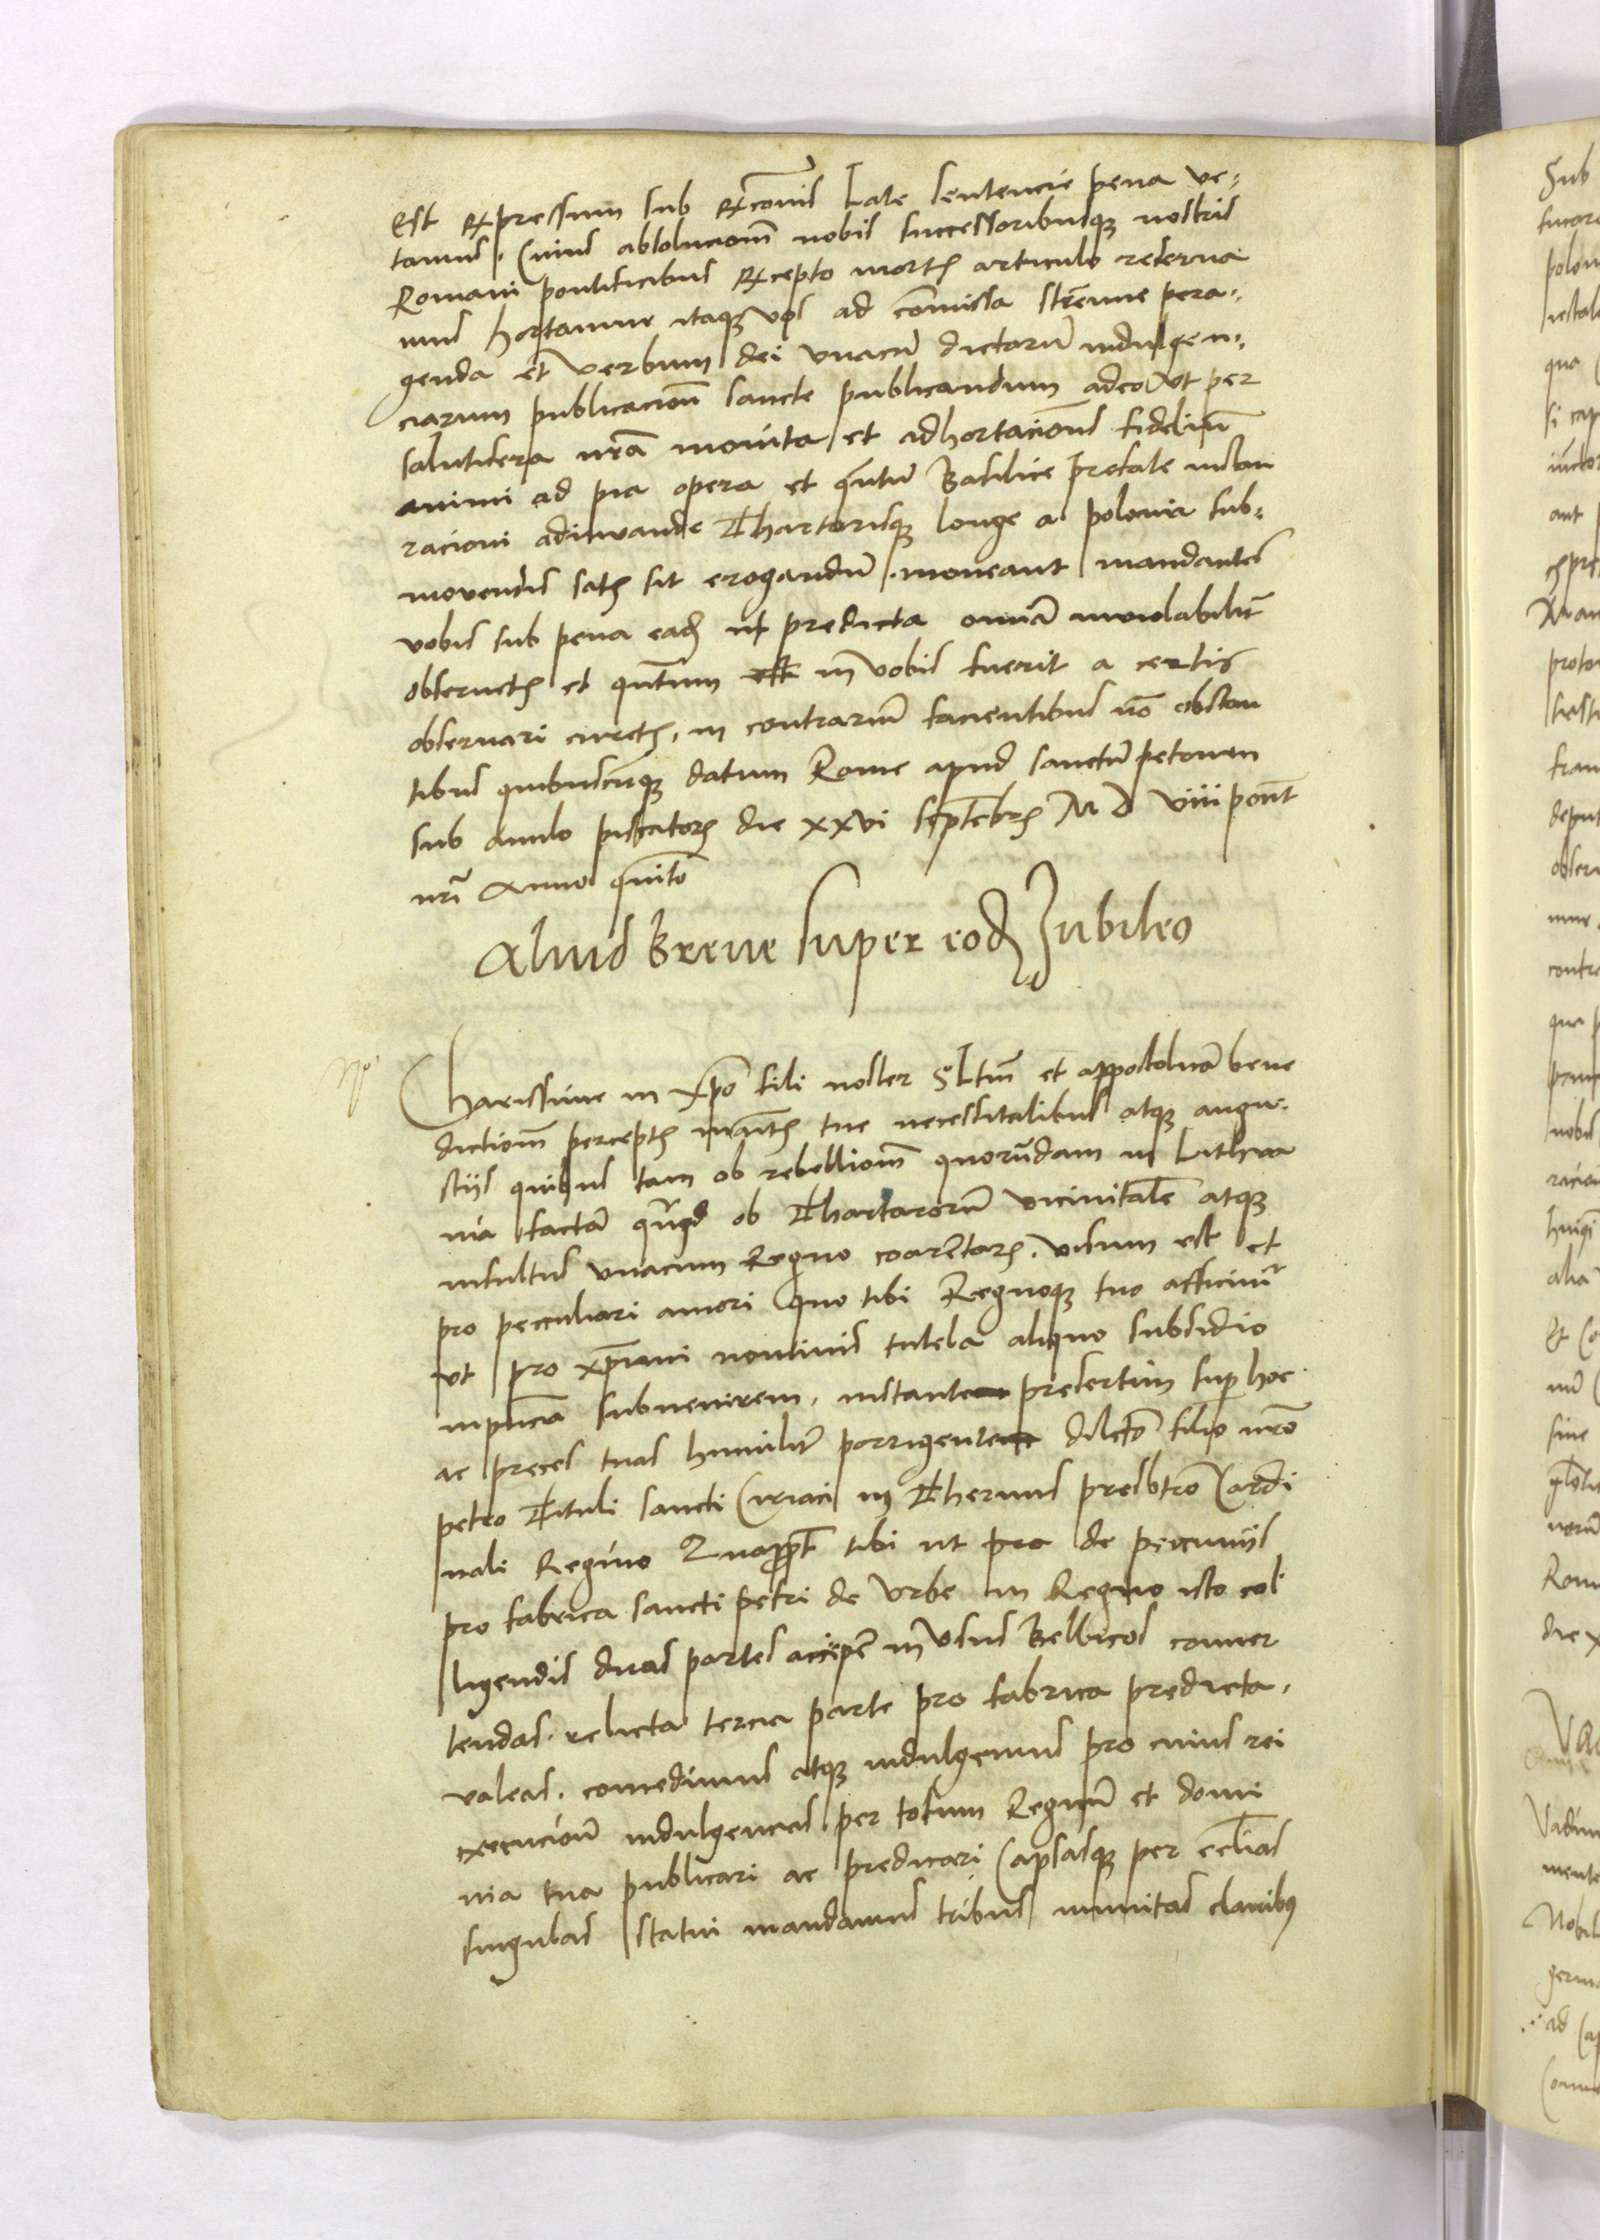 est expressum sub excōnis late sentencie pena ve-
tamus. Cuius absolucionem nobis successoribusque nostris
Romani pontificibus excepto mortis articulo reserva
mus hortamur itaque vos ad cōmissa strenue pera-
genda et verbum dei unacum dictarum indulgen-
ciarum publicacione sancte publicandum adeo ut per
salutifera nrā monita et adhortaciones fidelium
animi ad pia opera et quantum Basilice prefate instau
racioni adiuvande Thartarisque longe a polonia sub-
movendis satis sit erogandum. moveant mandantes
vobis sub pena eadem ut predicta omnia inviolabiliter
observetis et quantum in vobis fuerit a certis
observari curetis, in contrarium facientibus nō obstan
tibus quibuscunque datum Rome apud sanctum petrum
sub anulo piscatoris die xxvi septēbris M D viii pont
nrī Anno quinto
Aliud breve super eodem Jubileo
Charissime in xpō fili noster Sltm et appostolicā bene
dictionem perceptis maiēstatis tue necessitatibus atque angu-
stiis quibus tam ob rebellionem quorundam in Lithva
nia factam quam quod ob Thartarorum vicinitatem atque
insultus unacum Regno coarctaris. visum est et
pro peculiari amori quo tibi Regnoque tuo afficimur
ut pro xpiani nominis tutela aliquo subsidio
subvenirem, instante presertim super hoc
ac preces tuas humiliter porrigente dilecto filio nrō
petro Tituli sancti Ciriaci in Thermis presbtro Cardi
nali Regino Quapropter tibi ut de pecuniis
pro fabrica sancti petri de Urbe in Regno isto col
ligendis duas partes accipere in usus bellicos conver
tendas. relicta tercia parte pro fabrica predicta.
valeas. concedimus atque indulgemus pro cuius rei
execucione indulgencias per totum Regnum et domi
nia tua publicari ac predicari Capsasque per ecclias
singulas statui mandamus tribus munitas clavibus